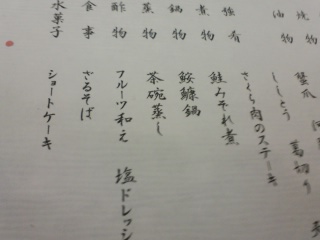 焼物
蟹爪
葛切り
油物
ししとう
強肴
さくら肉のステーキ
煮物
鮭みぞれ煮
鍋物
鮟鱇鍋
蒸物
茶碗蒸し
酢物
フルーツ和え 塩ドレッシ
食事
ざるそば
水菓子
ショートケーキ